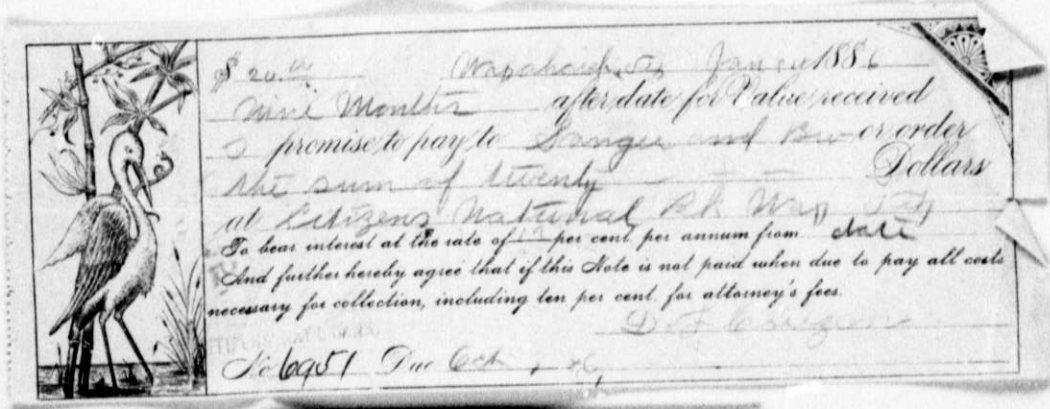 $20.00 Jan 1886
Nine Months after date for Value received
promise to pay to Sanger and Bro or order
the sum of twenty Dollars
at Citizens National Bk
To bear interest at the rate of per cent. per annum from date
And further hereby agree that if this Note is not paid when due to pay all costs
necessary for collection, including ten per cent. for attorney's fees.
D. F.
No 6951 Due Oct 86